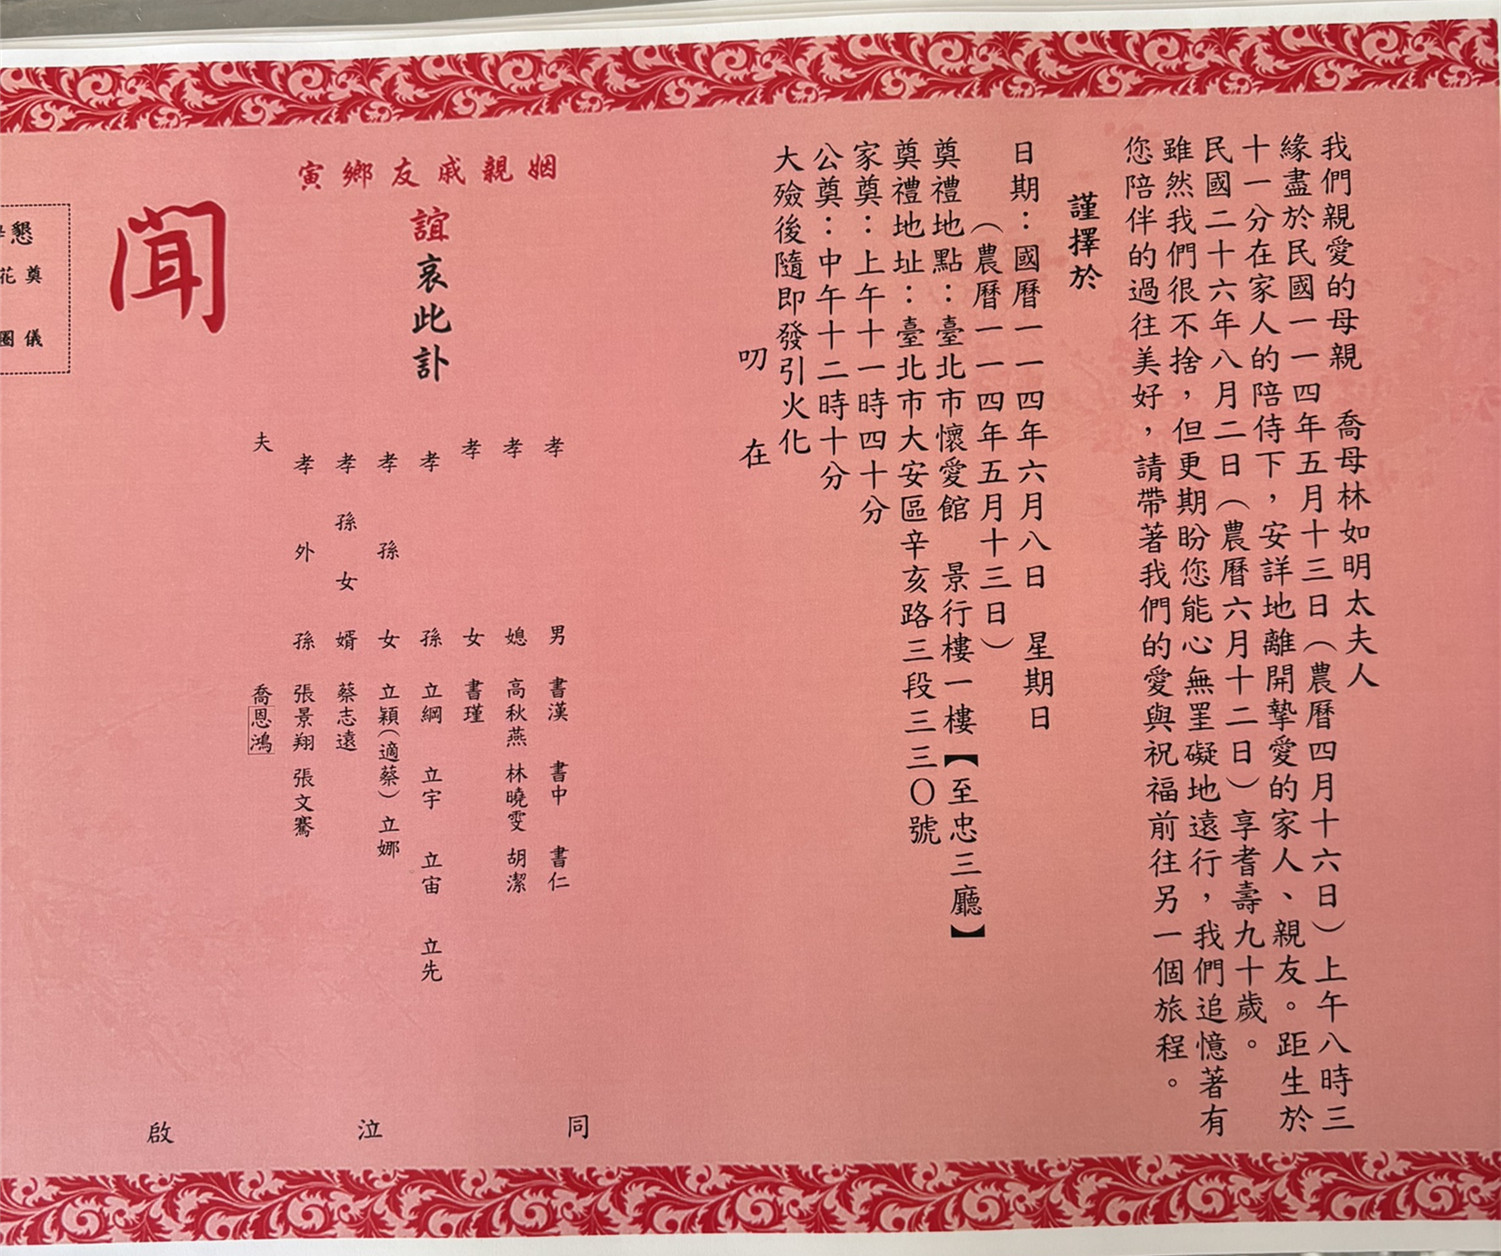 我們親愛的母親　喬母林如明太夫人
緣盡於民國一一四年五月十三日（農曆四月十六日）上午八時三
十一分在家人的陪侍下，安詳地離開摯愛的家人、親友。距生於
民國二十六年八月二日（農曆六月十二日）享耆壽九十歲。
雖然我們很不捨，但更期盼您能心無罣礙地遠行，我們追憶著有
您陪伴的過往美好，請帶著我們的愛與祝福前往另一個旅程。
謹擇於
日期：國曆一一四年六月八日　星期日
（農曆一一四年五月十三日）
奠禮地點：臺北市懷愛館　景行樓一樓【至忠三廳】
奠禮地址：臺北市大安區辛亥路三段三三〇號
家奠：上午十一時四十分
公奠：中午十二時十分
大殮後隨即發引火化
叨　在
姻親戚友鄉寅
誼哀此訃
聞
孝男　書漢　書中　書仁
孝媳　高秋燕　林曉雯　胡潔
孝女　書瑾
孝孫　立綱　立宇　立宙　立先
孝孫女　立穎（適蔡）立娜
孝孫女婿　蔡志遠
孝外孫　張景翔　張文騫
夫　喬恩鴻
同　泣　啟
懇
奠儀
花圈